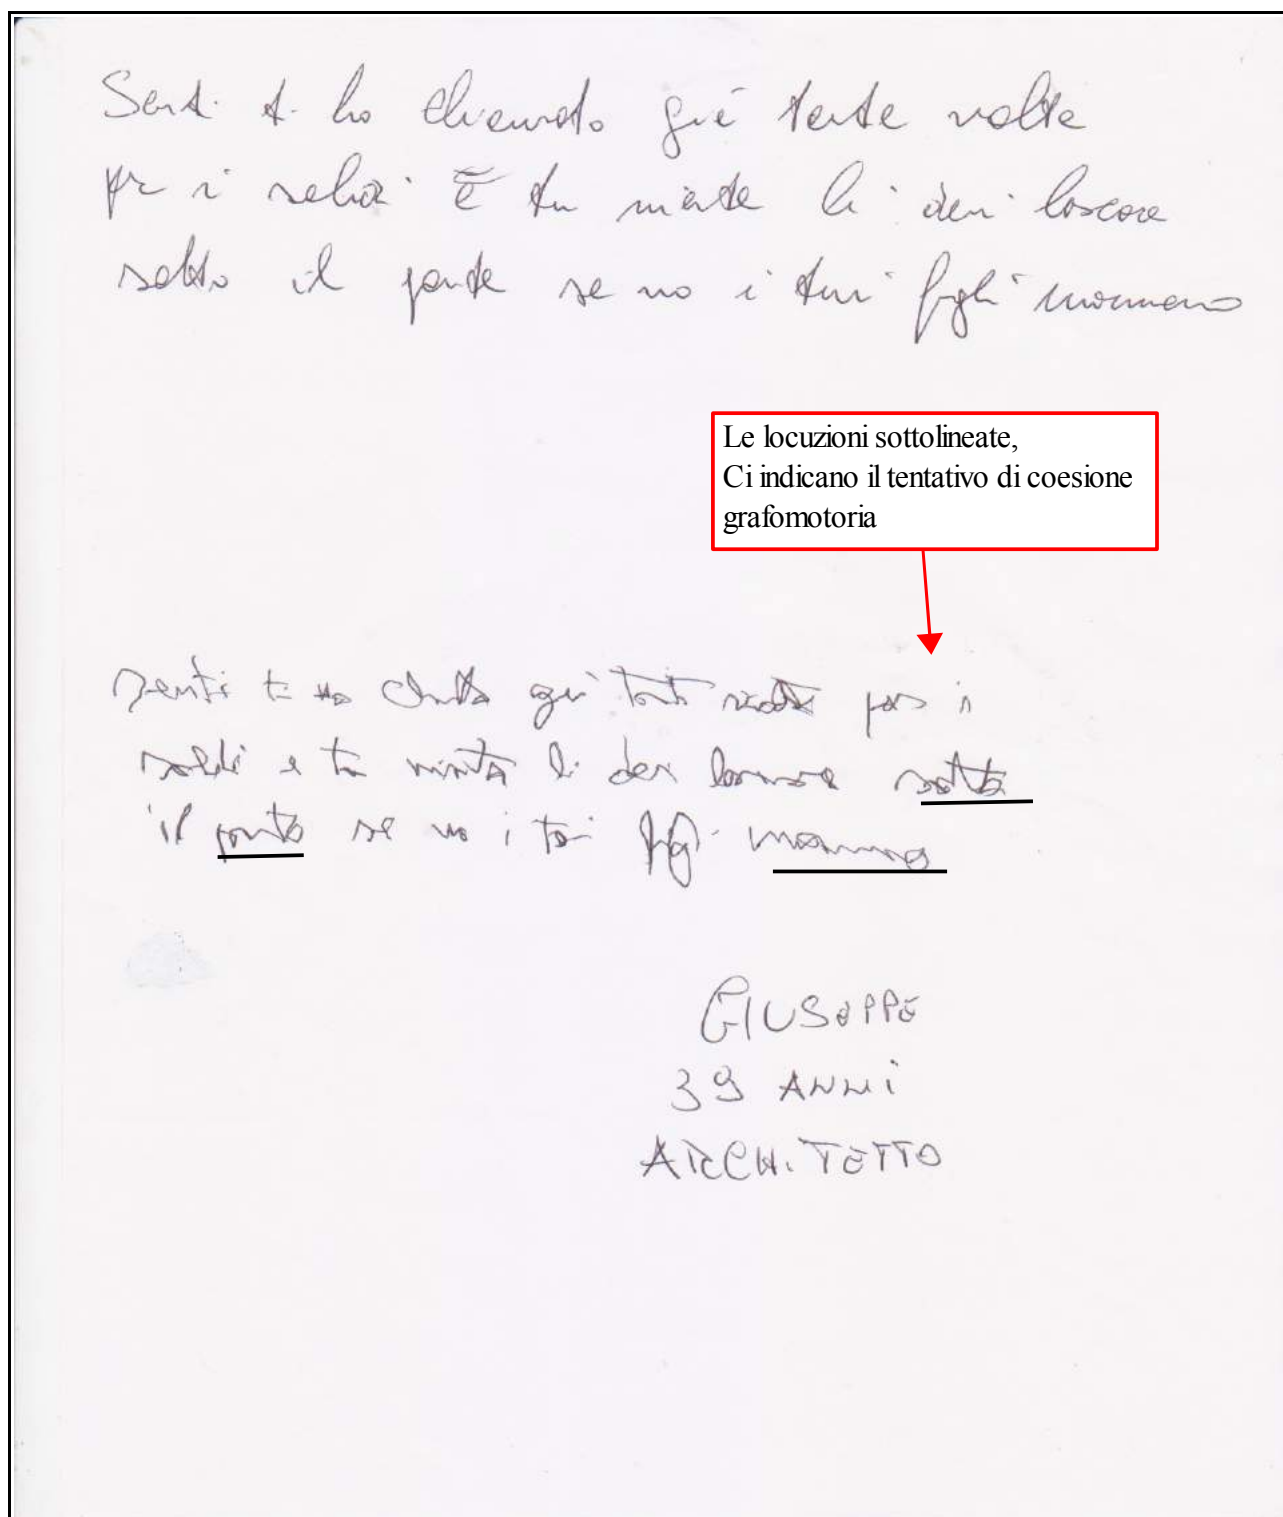 Senti ti ho chiamato già tante volte
per i soldi e tu niente li devi lasciare
sotto il ponte se no i tuoi figli muoiono
Le locuzioni sottolineate,
Ci indicano il tentativo di coesione
grafomotoria
senti ti ho già tante volte per i
soldi e tu niente li devi sotto
il ponte se no i tuoi figli
GIUSEPPE
39 ANNI
ARCHITETTO